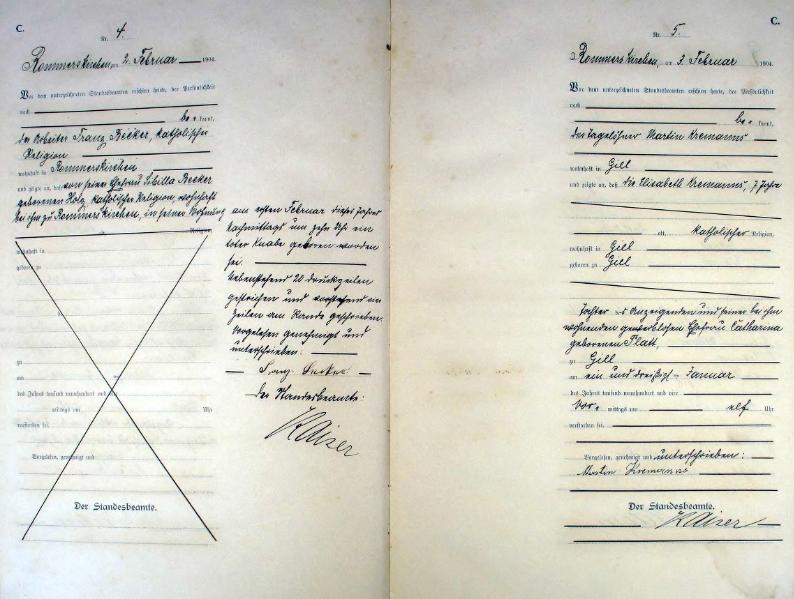 C.
Nr. 4.
Rommerskirchen, am 2. Februar 1904.
Vor dem unterzeichneten Standesbeamten erschien heute, der Persönlichkeit
nach
be kannt,
der Arbeiter Franz Becker, katholischer
Religion
wohnhaft in Rommerskirchen
und zeigte an, daß von seiner Ehefrau Sibilla Becker
geborenen Holz, katholischer Religion, wohnhaft
bei ihm zu Rommerskirchen, in seiner Wohnung
Religion,
wohnhaft in
geboren zu
zu
am
des Jahres tausend neunhundert und
mittags um Uhr
verstorben sei.
Vorgelesen, genehmigt und
Der Standesbeamte.
am ersten Februar dieses Jahres
Nachmittags um zehn Uhr ein
toter Knabe geboren worden
sei.
Nebenstehend 20 Druckzeilen
gestrichen und vorstehend vier
Zeilen am Rande geschrieben.
Vorgelesen genehmigt und
unterschrieben:
Franz Becker
Der Standesbeamte:
Kaiser
C.
Nr. 5.
Rommerskirchen, am 3. Februar 1904.
Vor dem unterzeichneten Standesbeamten erschien heute, der Persönlichkeit
nach
be kannt,
der Tagelöhner Martin Kremanns
wohnhaft in Gill
und zeigte an, daß die Elisabeth Kremanns, 7 Jahre
alt, katholischer Religion,
wohnhaft in Gill
geboren zu Gill
Tochter des Anzeigenden und seiner bei ihm
wohnenden gewerblosen Ehefrau Catharina
geborenen Platt,
zu Gill
am ein und dreißigsten Januar
des Jahres tausend neunhundert und vier
Vor mittags um elf Uhr
verstorben sei.
Vorgelesen, genehmigt und unterschrieben:
Martin Kremanns
Der Standesbeamte.
Kaiser